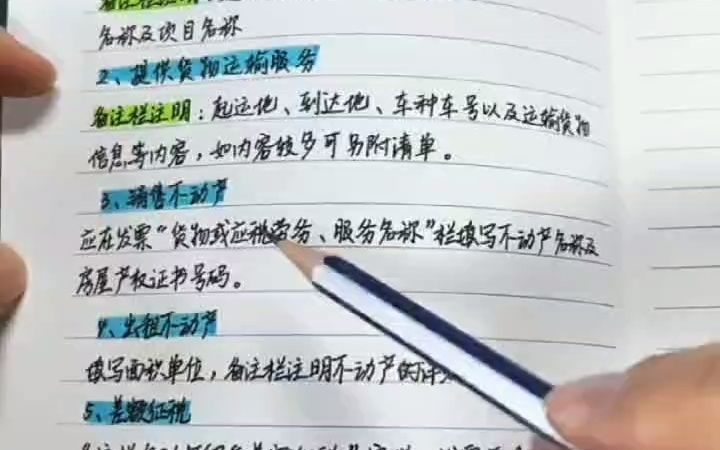 备注栏注明
名称及项目名称
2、提供货物运输服务
备注栏注明：起运地、到达地、车种车号以及运输货物
信息等内容，如内容较多可另附清单。
3、销售不动产
应在发票“货物或应税劳务、服务名称”栏填写不动产名称及
房屋产权证书号码。
4、出租不动产
填写面积单位，备注栏注明不动产的详
5、差额征税